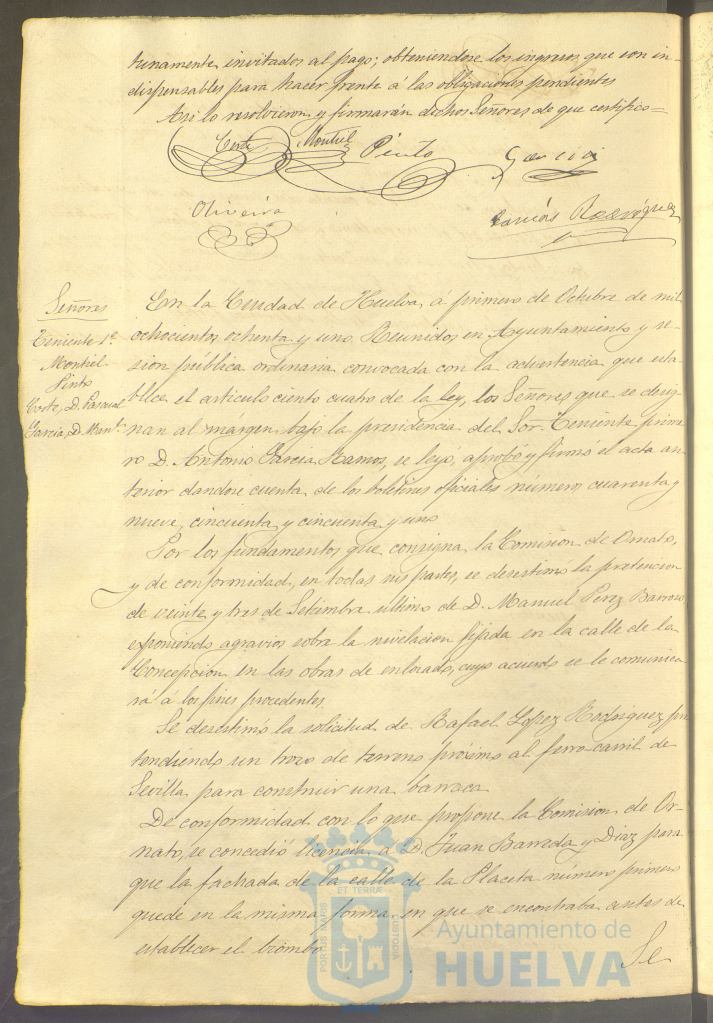 tunamente invitados al pago; obteniendose los ingresos, que son in-
dispensables para hacer frente á las obligaciones pendientes
Asi lo resolvieron y firmarán dichos Señores de que certifico=
Corte Montiel Pinto Garcia
Oliveira Rodriguez
Señores
Teniente 1º
Montiel
Pinto
Corte, D. Pascual
Garcia, D. Manl.
En la Ciudad de Huelva, á primero de Octubre de mil
ochocientos ochenta y uno Reunidos en Ayuntamiento y se-
sion pública ordinaria convocada con la advertencia que esta-
blece el articulo ciento cuatro de la ley, los Señores que se desig-
nan al márgen bajo la presidencia del Sor. Teniente prime-
ro D. Antonio Garcia Ramos, se leyó, aprobó y firmó el acta an-
terior dandose cuenta de los boletines oficiales número cuarenta y
nueve, cincuenta y cincuenta y uno
Por los fundamentos que consigna la Comision de Ornato,
y de conformidad, en todas sus partes, se desestimó la pretencion
de veinte y tres de Setiembre último de D. Manuel Perez Barroso
exponiendo agravios sobre la nivelacion fijada en la calle de la
Concepcion, en las obras de enlosado, cuyo acuerdo se le comunica-
rá á los fines procedentes.
Se desestimó la solicitud de Rafael Lopez Rodriguez pre
tendiendo un trozo de terreno próximo al ferro-carril de
Sevilla para construir una barraca
De conformidad con lo que propone la Comision de Or-
nato, se concedió licencia á D. Juan Barreda y Diaz para
que la fachada de la calle de la Placeta número primero
quede en la misma forma en que se encontraba antes de
establecer el biombo
Se
PORTUS MARIS ET TERRÆ CUSTODIA
Ayuntamiento de
HUELVA